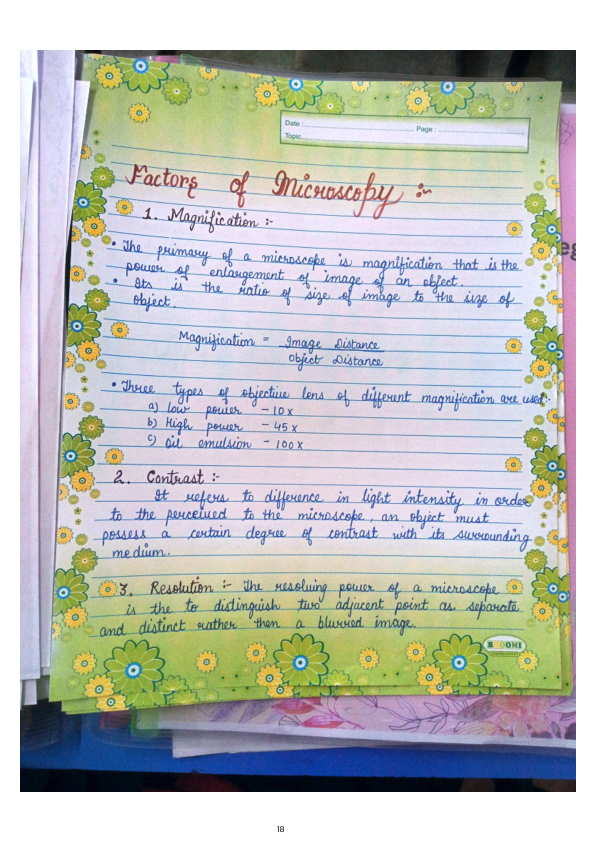 Date :
Page :
Topic
Factors of Microscopy :~
1. Magnification :-
• The primary of a microscope is magnification that is the
power of enlargement of image of an object.
• Its is the ratio of size of image to the size of
object.
Magnification = Image Distance
Object Distance
• Three types of objective lens of different magnification are used:-
a) low power - 10x
b) High power - 45x
c) Oil emulsion - 100x
2. Contrast :-
It refers to difference in light intensity in order
to the perceived to the microscope, an object must
possess a certain degree of contrast with its surrounding
medium.
3. Resolution :- The resolving power of a microscope
is the to distinguish two adjacent point as separate
and distinct rather then a blurred image.
18